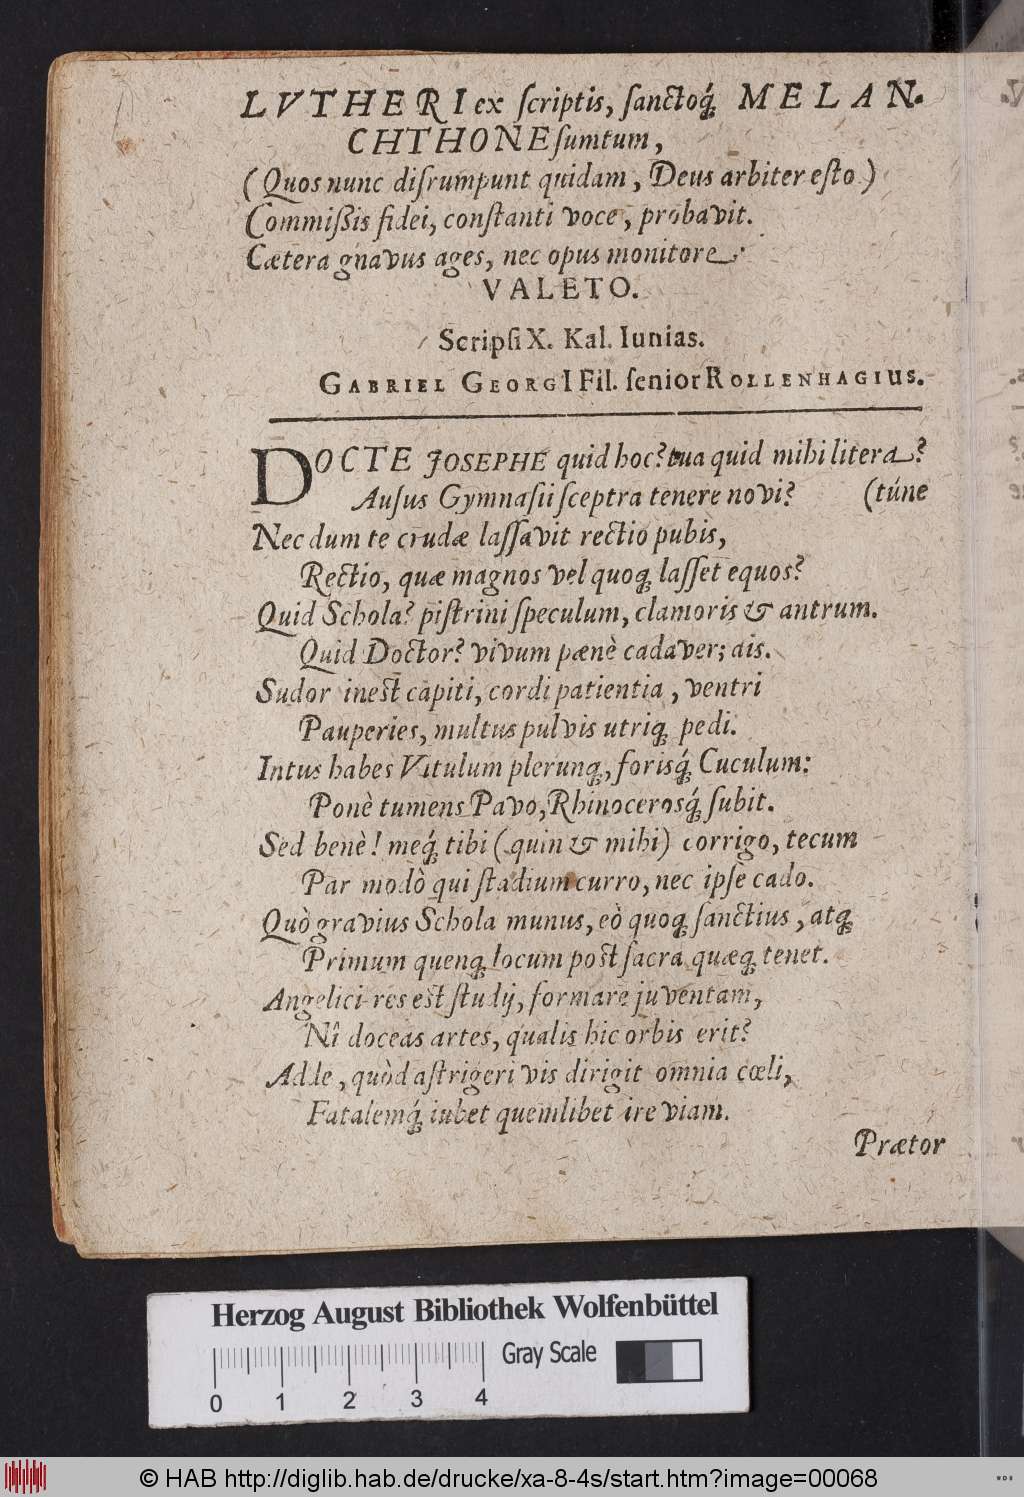 LVTHERI ex ſcriptis, ſanctoq́ꝫ MELAN-
CHTHONE ſumtum,
(Quos nunc diſrumpunt quidam, Deus arbiter eſto)
Commißis fidei, conſtanti voce, probavit.
Cætera gnavus ages, nec opus monitore.
VALETO.
Scripſi X. Kal. Iunias.
GABRIEL GEORGI Fil. ſenior ROLLENHAGIUS.
DOCTE JOSEPHE quid hoc? tua quid mihi litera?
Auſus Gymnaſii ſceptra tenere novi? (túne
Nec dum te crudæ laſſavit rectio pubis,
Rectio, quæ magnos vel quoqꝫ laſſet equos?
Quid Schola? piſtrini ſpeculum, clamoris & antrum.
Quid Doctor? vivum pænè cadaver; ais.
Sudor ineſt capiti, cordi patientia, ventri
Pauperies, multus pulvis utriqꝫ pedi.
Intus habes Vitulum plerunqꝫ, forisq́ꝫ Cuculum:
Ponè tumens Pavo, Rhinocerosq́ꝫ ſubit.
Sed benè! meq́ꝫ tibi (quin & mihi) corrigo, tecum
Par modò qui ſtadium curro, nec ipſe cado.
Quò gravius Schola munus, eò quoqꝫ ſanctius, atqꝫ
Primum quenqꝫ locum poſt ſacra quæqꝫ tenet.
Angelici res eſt ſtudij, formare juventam,
Nî doceas artes, qualis hic orbis erit?
Adde, quòd aſtrigeri vis dirigit omnia cœli,
Fatalemq́ꝫ iubet quemlibet ire viam.
Prætor
Herzog August Bibliothek Wolfenbüttel
Gray Scale
0 1 2 3 4
© HAB http://diglib.hab.de/drucke/xa-8-4s/start.htm?image=00068